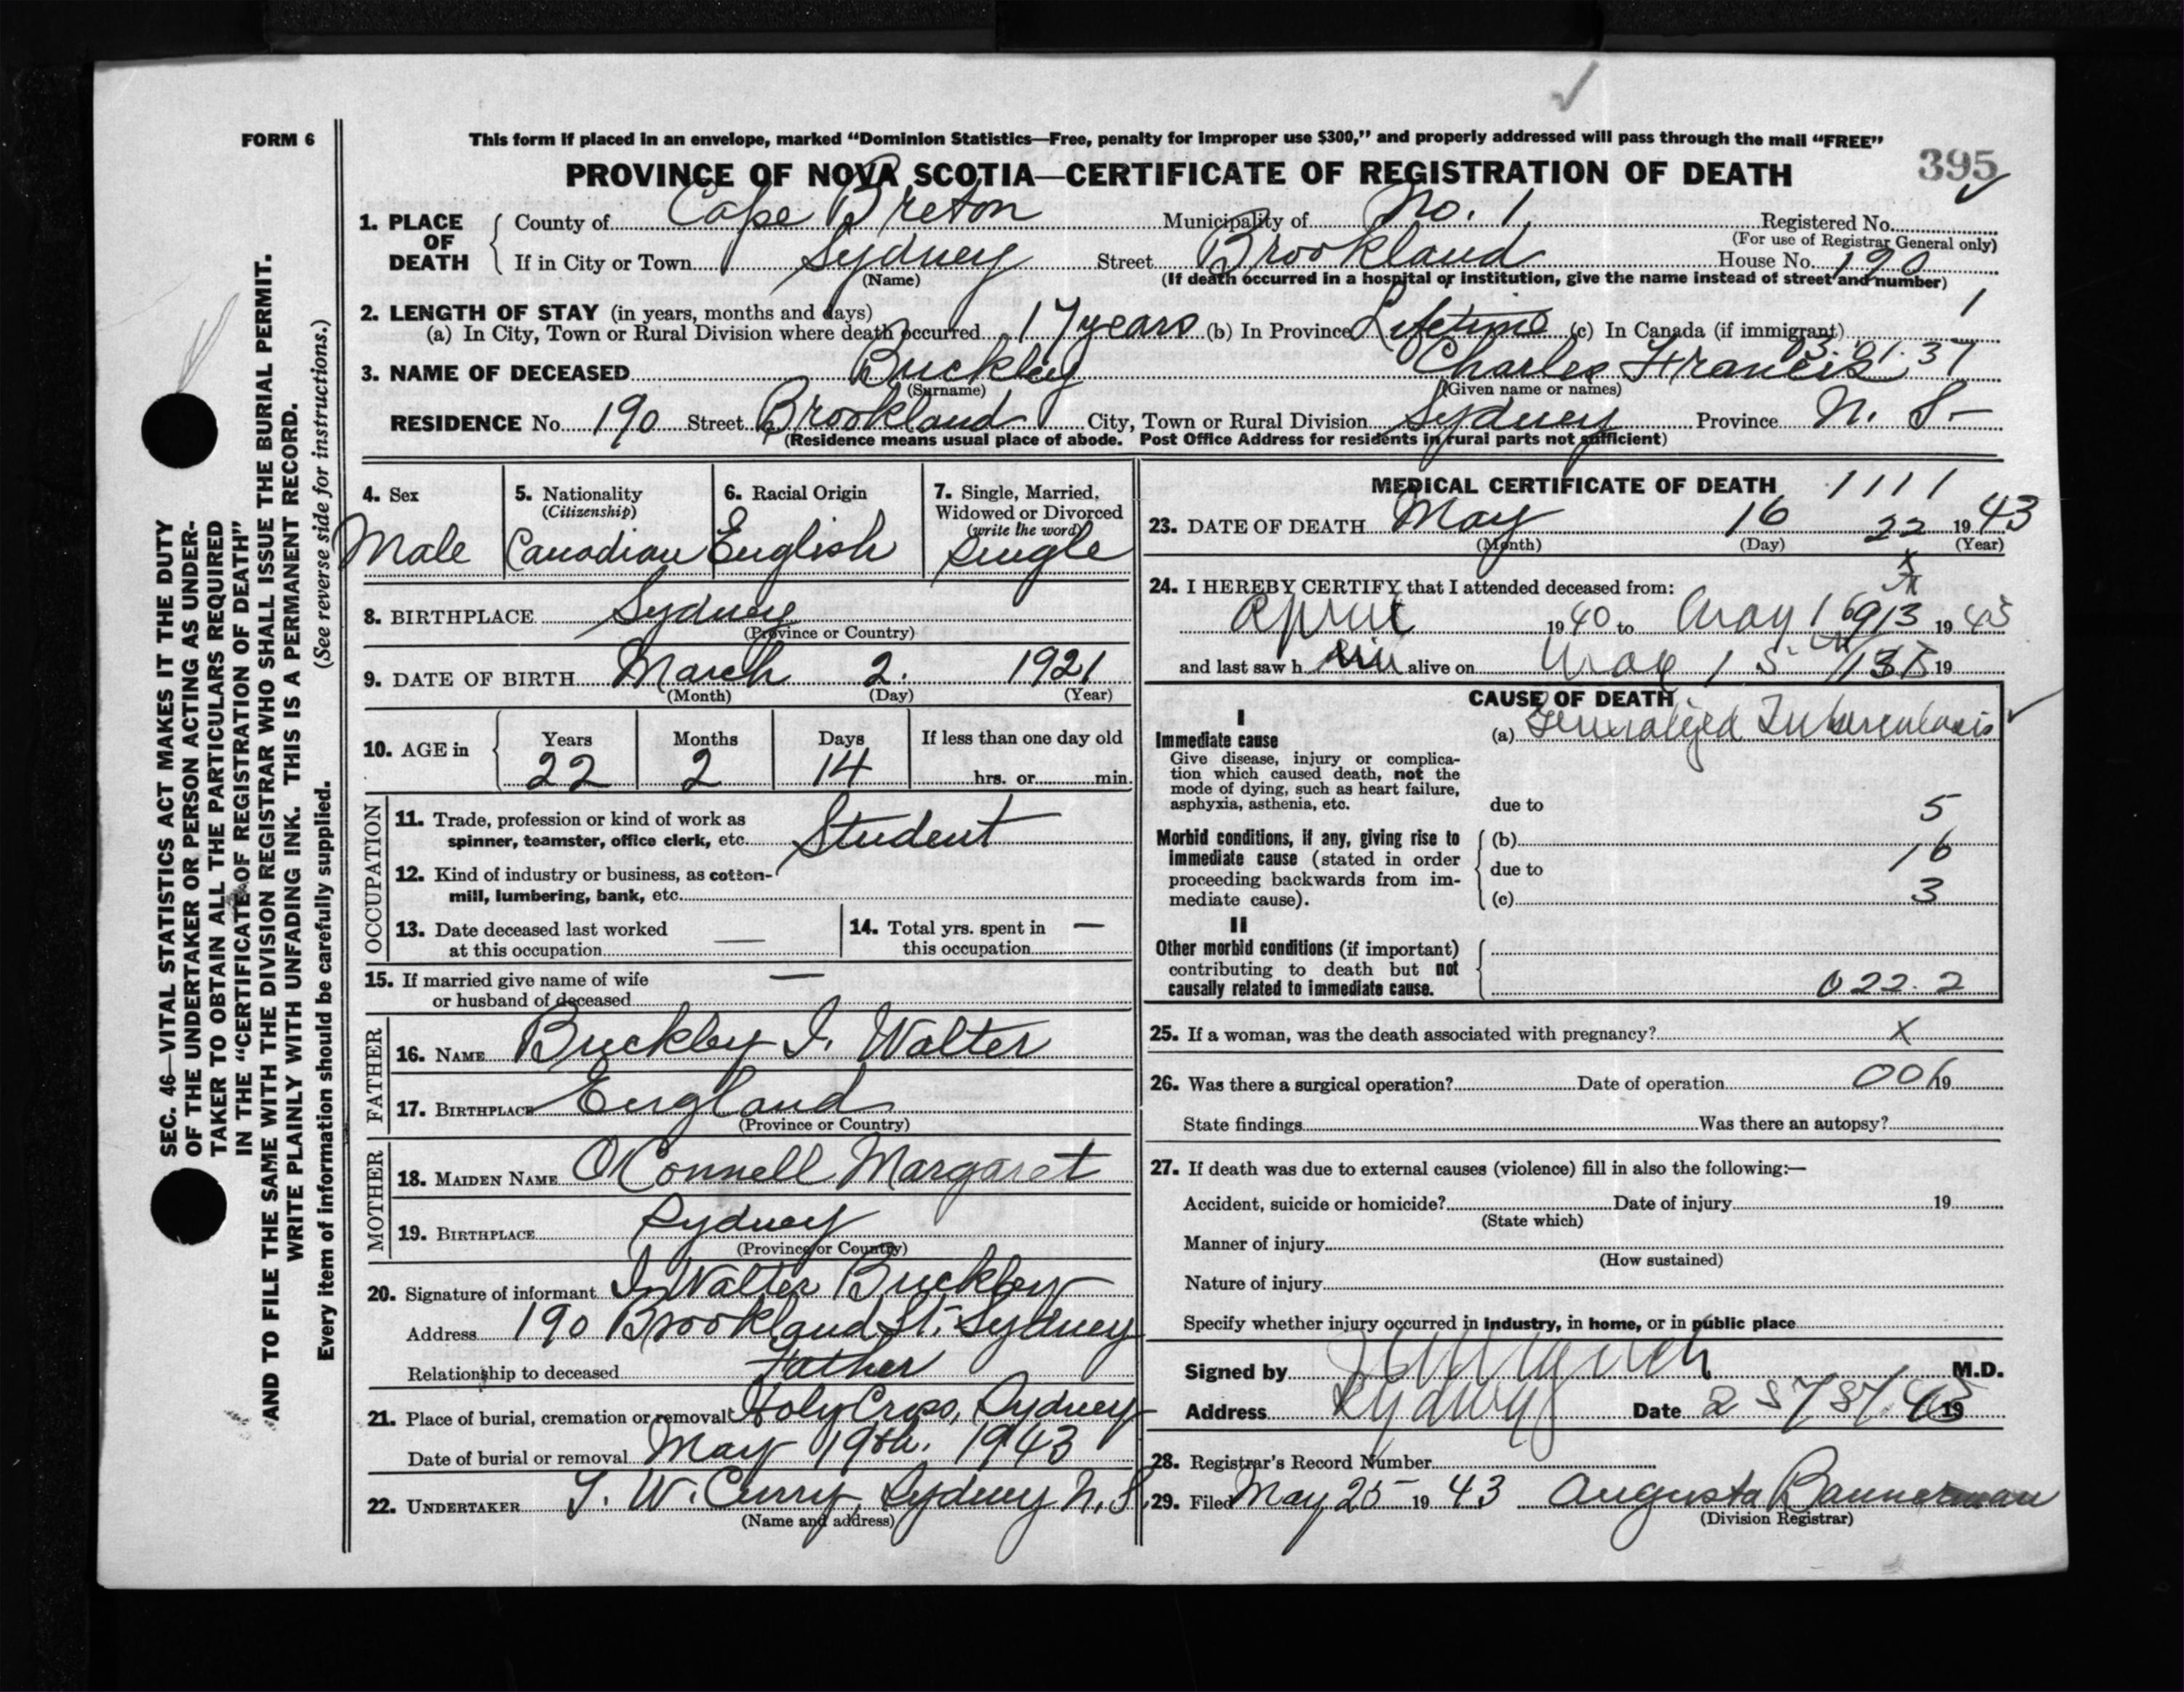 FORM 6
This form if placed in an envelope, marked “Dominion Statistics—Free, penalty for improper use $300,” and properly addressed will pass through the mail “FREE”
PROVINCE OF NOVA SCOTIA—CERTIFICATE OF REGISTRATION OF DEATH
395
1. PLACE OF DEATH County of Cape Breton Municipality of No. 1 Registered No.
(For use of Registrar General only)
If in City or Town Sydney Street Brookland House No. 190
(Name) (If death occurred in a hospital or institution, give the name instead of street and number)
2. LENGTH OF STAY (in years, months and days) 1
(a) In City, Town or Rural Division where death occurred 17 years (b) In Province Lifetime (c) In Canada (if immigrant)
03.01.37
3. NAME OF DECEASED Buckley Charles Francis
(Surname) (Given name or names)
RESIDENCE No. 190 Street Brookland City, Town or Rural Division Sydney Province N. S.
(Residence means usual place of abode. Post Office Address for residents in rural parts not sufficient)
4. Sex 5. Nationality 6. Racial Origin 7. Single, Married,
(Citizenship) Widowed or Divorced
(write the word)
Male Canadian English Single
8. BIRTHPLACE Sydney
(Province or Country)
9. DATE OF BIRTH March 2. 1921
(Month) (Day) (Year)
10. AGE in Years Months Days If less than one day old
22 2 14 hrs. or min.
OCCUPATION
11. Trade, profession or kind of work as
spinner, teamster, office clerk, etc. Student
12. Kind of industry or business, as cotton-
mill, lumbering, bank, etc.
13. Date deceased last worked — 14. Total yrs. spent in —
at this occupation this occupation
15. If married give name of wife —
or husband of deceased
FATHER
16. NAME Buckley J. Walter
17. BIRTHPLACE England
(Province or Country)
MOTHER
18. MAIDEN NAME O'Connell Margaret
19. BIRTHPLACE Sydney
(Province or Country)
20. Signature of informant J. Walter Buckley
Address 190 Brookland St. Sydney
Relationship to deceased Father
21. Place of burial, cremation or removal Holy Cross, Sydney
Date of burial or removal May 19th. 1943
22. UNDERTAKER T. W. Curry, Sydney N. S.
(Name and address)
MEDICAL CERTIFICATE OF DEATH 1111
23. DATE OF DEATH May 16 22 1943
(Month) (Day) (Year)
24. I HEREBY CERTIFY that I attended deceased from:
April 1940 to May 16 1943
and last saw h im alive on May 15 19
CAUSE OF DEATH
I
Immediate cause (a) Generalized Tuberculosis
Give disease, injury or complica-
tion which caused death, not the
mode of dying, such as heart failure,
asphyxia, asthenia, etc. due to 5
Morbid conditions, if any, giving rise to (b)
immediate cause (stated in order 16
proceeding backwards from im- due to
mediate cause). (c) 3
II
Other morbid conditions (if important)
contributing to death but not
causally related to immediate cause. 022.2
25. If a woman, was the death associated with pregnancy? X
26. Was there a surgical operation? Date of operation 006 19
State findings Was there an autopsy?
27. If death was due to external causes (violence) fill in also the following:—
Accident, suicide or homicide? Date of injury 19
(State which)
Manner of injury
(How sustained)
Nature of injury
Specify whether injury occurred in industry, in home, or in public place
Signed by M.D.
Address Sydney Date 19
28. Registrar's Record Number
29. Filed May 25 1943 Augusta Bannerman
(Division Registrar)
SEC. 46—VITAL STATISTICS ACT MAKES IT THE DUTY
OF THE UNDERTAKER OR PERSON ACTING AS UNDER-
TAKER TO OBTAIN ALL THE PARTICULARS REQUIRED
IN THE “CERTIFICATE OF REGISTRATION OF DEATH”
AND TO FILE THE SAME WITH THE DIVISION REGISTRAR WHO SHALL ISSUE THE BURIAL PERMIT.
WRITE PLAINLY WITH UNFADING INK. THIS IS A PERMANENT RECORD.
Every item of information should be carefully supplied. (See reverse side for instructions.)